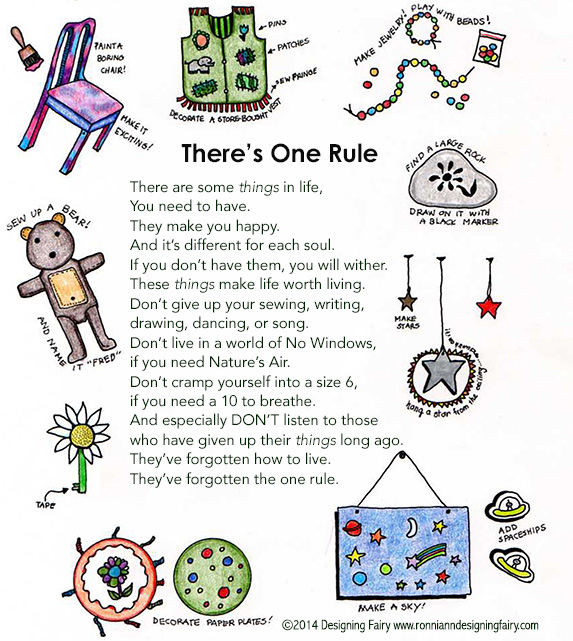 PAINT A
BORING
CHAIR!
MAKE IT
EXCITING!
PINS
PATCHES
SEW FRINGE
DECORATE A STORE-BOUGHT VEST
MAKE JEWELRY! PLAY WITH BEADS!
There's One Rule
There are some things in life,
You need to have.
They make you happy.
And it's different for each soul.
If you don't have them, you will wither.
These things make life worth living.
Don't give up your sewing, writing,
drawing, dancing, or song.
Don't live in a world of No Windows,
if you need Nature's Air.
Don't cramp yourself into a size 6,
if you need a 10 to breathe.
And especially DON'T listen to those
who have given up their things long ago.
They've forgotten how to live.
They've forgotten the one rule.
FIND A LARGE ROCK
DRAW ON IT WITH
A BLACK MARKER
SEW UP A BEAR!
AND NAME
IT "FRED"
MAKE
STARS
hang a star from the ceiling
TAPE
ADD
SPACESHIPS
MAKE A SKY!
DECORATE PAPER PLATES!
©2014 Designing Fairy www.ronnianndesigningfairy.com